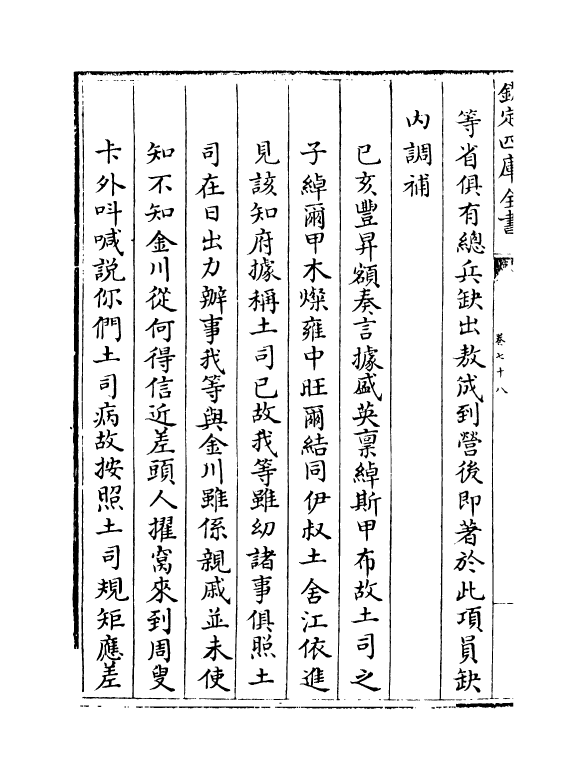 欽定四庫全書
卷七十八
等省俱有總兵缺出敖成到營後即著於此項員缺
内調補
己亥豐昇額奏言據盛英稟綽斯甲布故土司之
子綽爾甲木燦雍中旺爾結同伊叔土舍江依進
見該知府據稱土司已故我等雖幼諸事俱照土
司在日出力辦事我等與金川雖係親戚並未使
知不知金川從何得信近差頭人擢窩來到周叟
卡外呌喊説你們土司病故按照土司規矩應差